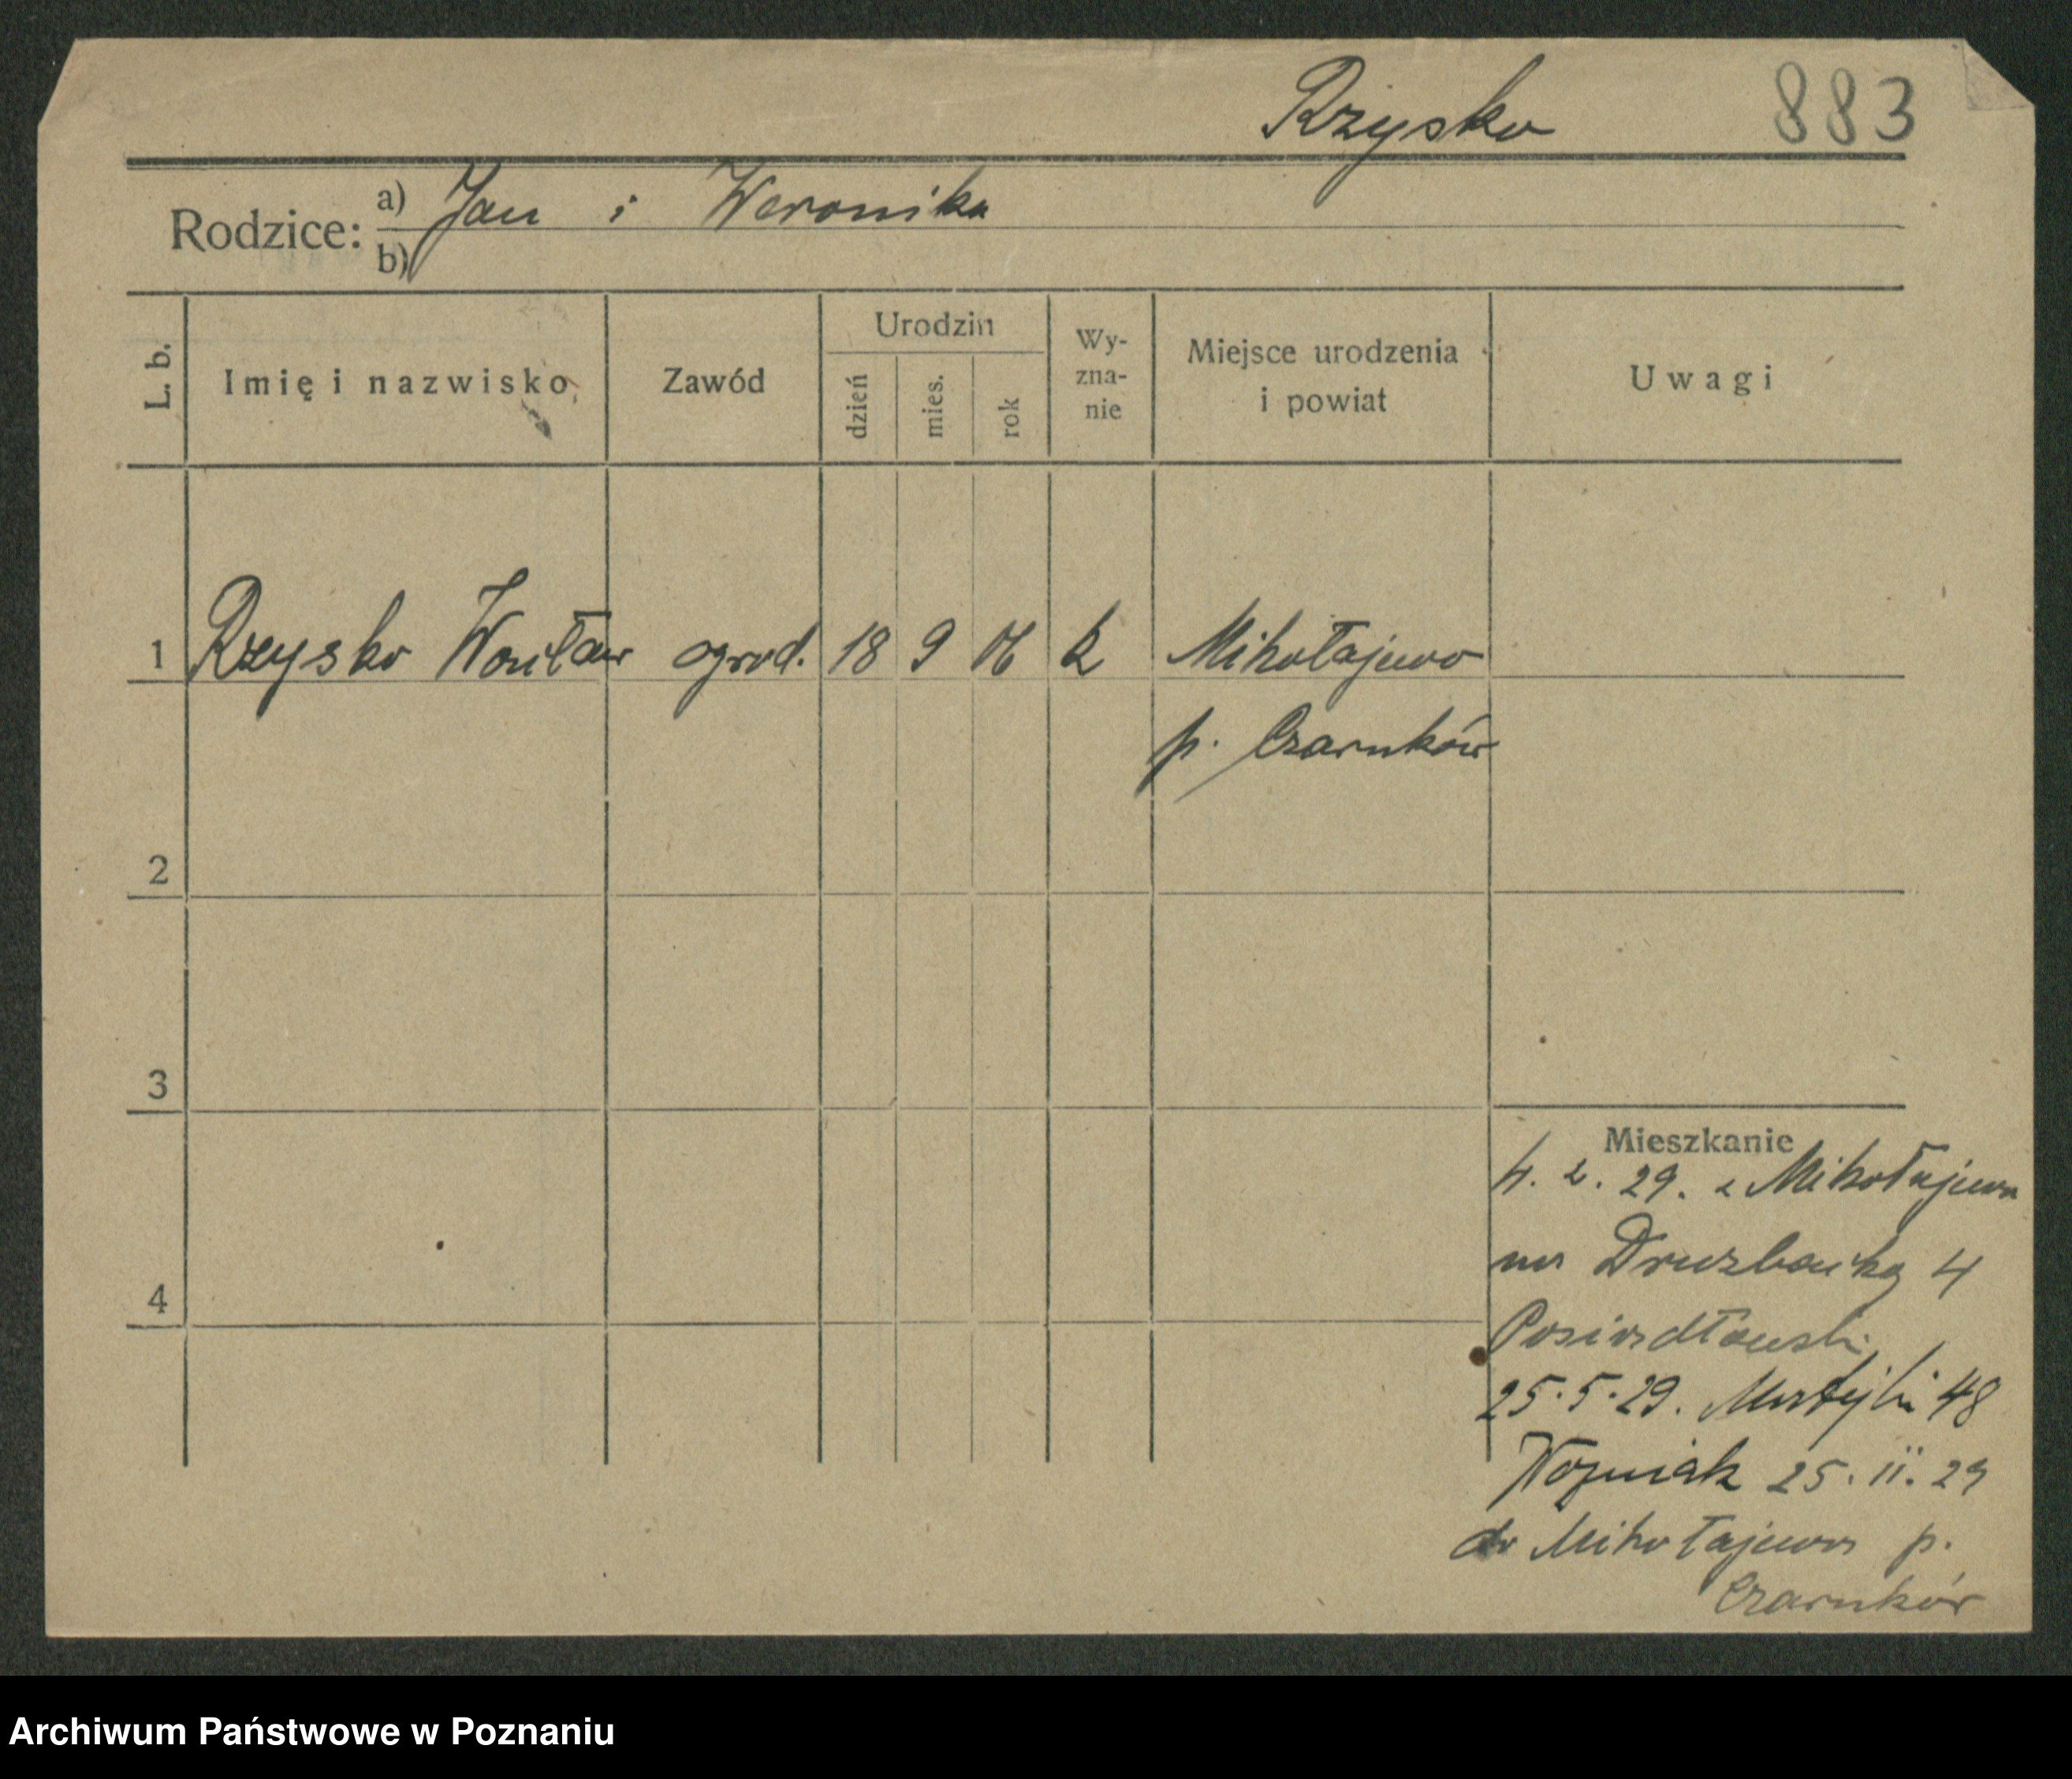 Rzysko 883
Rodzice: a) Jan i Weronika
b)
L. b. Imię i nazwisko Zawód Urodzin dzień mies. rok Wy-zna-nie Miejsce urodzenia i powiat Uwagi
1 Rzysko Wacław ogrod. 18 9 06 k Mikołajewo
p. Czarnków
2
3
Mieszkanie
4. 2. 29. z Mikołajewa
na Druzbacką 4
4
25.5.29. Matejki 48
Wozniak 25.11.29
do Mikołajewa p.
Czarnków
Archiwum Państwowe w Poznaniu